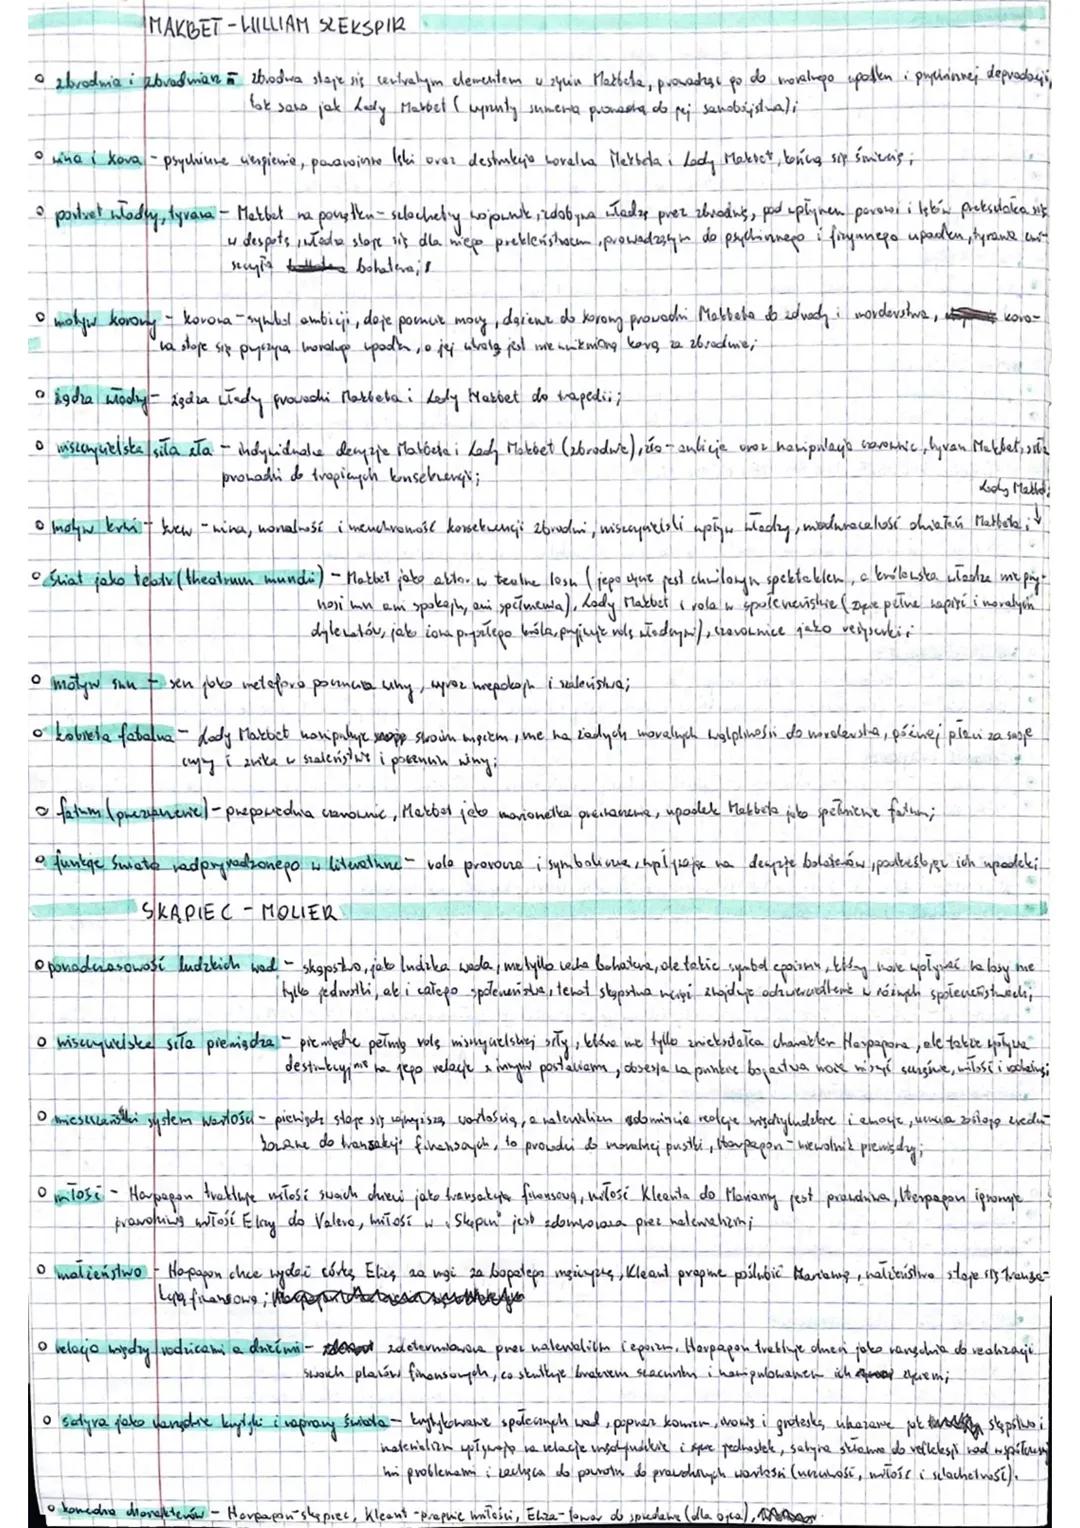 MAKBET - WILLIAM SZEKSPIR
zbrodnia i zbrodniarz - zbrodnia staje się centralnym elementem w życiu Makbeta, prowadząc go do moralnego upadku i psychicznej degradacji,
tak samo jak Lady Makbet (wyrzuty sumienia prowadzą do jej samobójstwa);
wina i kara - psychiczne cierpienie, paranoiczne lęki oraz destrukcja moralna Makbeta i Lady Makbet, kończą się śmiercią;
portret władcy, tyrana - Makbet na początku - szlachetny wojownik, zdobywa władzę przez zbrodnię, pod wpływem paranoi i lęków przekształca się
w despotę, władza staje się dla niego przekleństwem, prowadzącym do psychicznego i fizycznego upadku, tyrania
bohatera;
motyw korony - korona - symbol ambicji, daje poczucie mocy, dążenie do korony prowadzi Makbeta do zdrady i morderstwa, koro-
na staje się przyczyną moralnego upadku, a jej utrata jest nieuniknioną karą za zbrodnie;
żądza władzy - żądza władzy prowadzi Makbeta i Lady Makbet do tragedii;
niszczycielska siła zła - indywidualne decyzje Makbeta i Lady Makbet (zbrodnie), zło - ambicje oraz manipulacja czarownic, tyran Makbet, siła
prowadzi do tragicznych konsekwencji;
Lady Makbet;
motyw krwi - krew - wina, moralność i nieuchronność konsekwencji zbrodni, niszczycielski wpływ władzy, nieodwracalność działań Makbeta i
Świat jako teatr (theatrum mundi) - Makbet jako aktor w teatrze losu (jego życie jest chwilowym spektaklem, a królewska władza nie przy-
nosi mu ani spokoju, ani spełnienia), Lady Makbet i rola w społeczeństwie (życie pełne napięć i moralnych
dylematów, jako żona przyszłego króla, przyjmuje rolę władczyni), czarownice jako reżyserki;
motyw snu - sen jako metafora poczucia winy, wyraz niepokoju i szaleństwa;
kobieta fatalna - Lady Makbet manipuluje swoim mężem, nie ma żadnych moralnych wątpliwości do morderstwa, później płaci za swoje
czyny i znika w szaleństwie i poczuciu winy;
fatum (przeznaczenie) - przepowiednia czarownic, Makbet jako marionetka przeznaczenia, upadek Makbeta jako spełnienie fatum;
funkcje świata nadprzyrodzonego w literaturze - rola prorocza i symboliczna, wpływając na decyzje bohaterów, podkreślając ich upadek;
SKĄPIEC - MOLIER
ponadczasowość ludzkich wad - skąpstwo, jako ludzka wada, nie tylko cecha bohatera, ale także symbol egoizmu, który może wpływać na losy nie
tylko jednostki, ale i całego społeczeństwa, temat skąpstwa wciąż znajduje odzwierciedlenie w różnych społeczeństwach;
niszczycielska siła pieniądza - pieniądze pełnią rolę niszczycielskiej siły, która nie tylko zniekształca charakter Harpagona, ale także wpływa
destrukcyjnie na jego relacje z innymi postaciami, obsesja na punkcie bogactwa może niszczyć szczęście, miłość i
mieszczański system wartości - pieniądz staje się najwyższą wartością, a materializm zdominuje relacje międzyludzkie i emocje, uczucia zostają zredu-
kowane do transakcji finansowych, to prowadzi do moralnej pustki, Harpagon - niewolnik pieniędzy;
miłość - Harpagon traktuje miłość swoich dzieci jako transakcję finansową, miłość Kleanta do Marianny jest prawdziwa, Harpagon ignoruje
prawdziwą miłość Elizy do Valera, miłość w „Skąpcu" jest zdominowana przez materializm;
małżeństwo - Harpagon chce wydać córkę Elizę za mąż za bogatego mężczyznę, Kleant pragnie poślubić Mariannę, małżeństwo staje się transa-
kcją finansową;
relacja między rodzicami a dziećmi - zdeterminowana przez materializm i egoizm. Harpagon traktuje dzieci jako narzędzia do realizacji
swoich planów finansowych, co skutkuje brakiem szacunku i manipulowaniem ich życiem;
satyra jako narzędzie krytyki i naprawy świata - krytykowanie społecznych wad, poprzez komizm, ironię i groteskę, ukazanie jak skąpstwo i
materializm wpływają na relacje międzyludzkie i życie jednostek, satyra skłania do refleksji nad współczesny-
mi problemami i zachęca do powrotu do prawdziwych wartości (uczciwość, miłość i szlachetność).
komedia charakterów - Harpagon - skąpiec, Kleant - pragnie miłości, Eliza - towar do sprzedania (dla ojca),